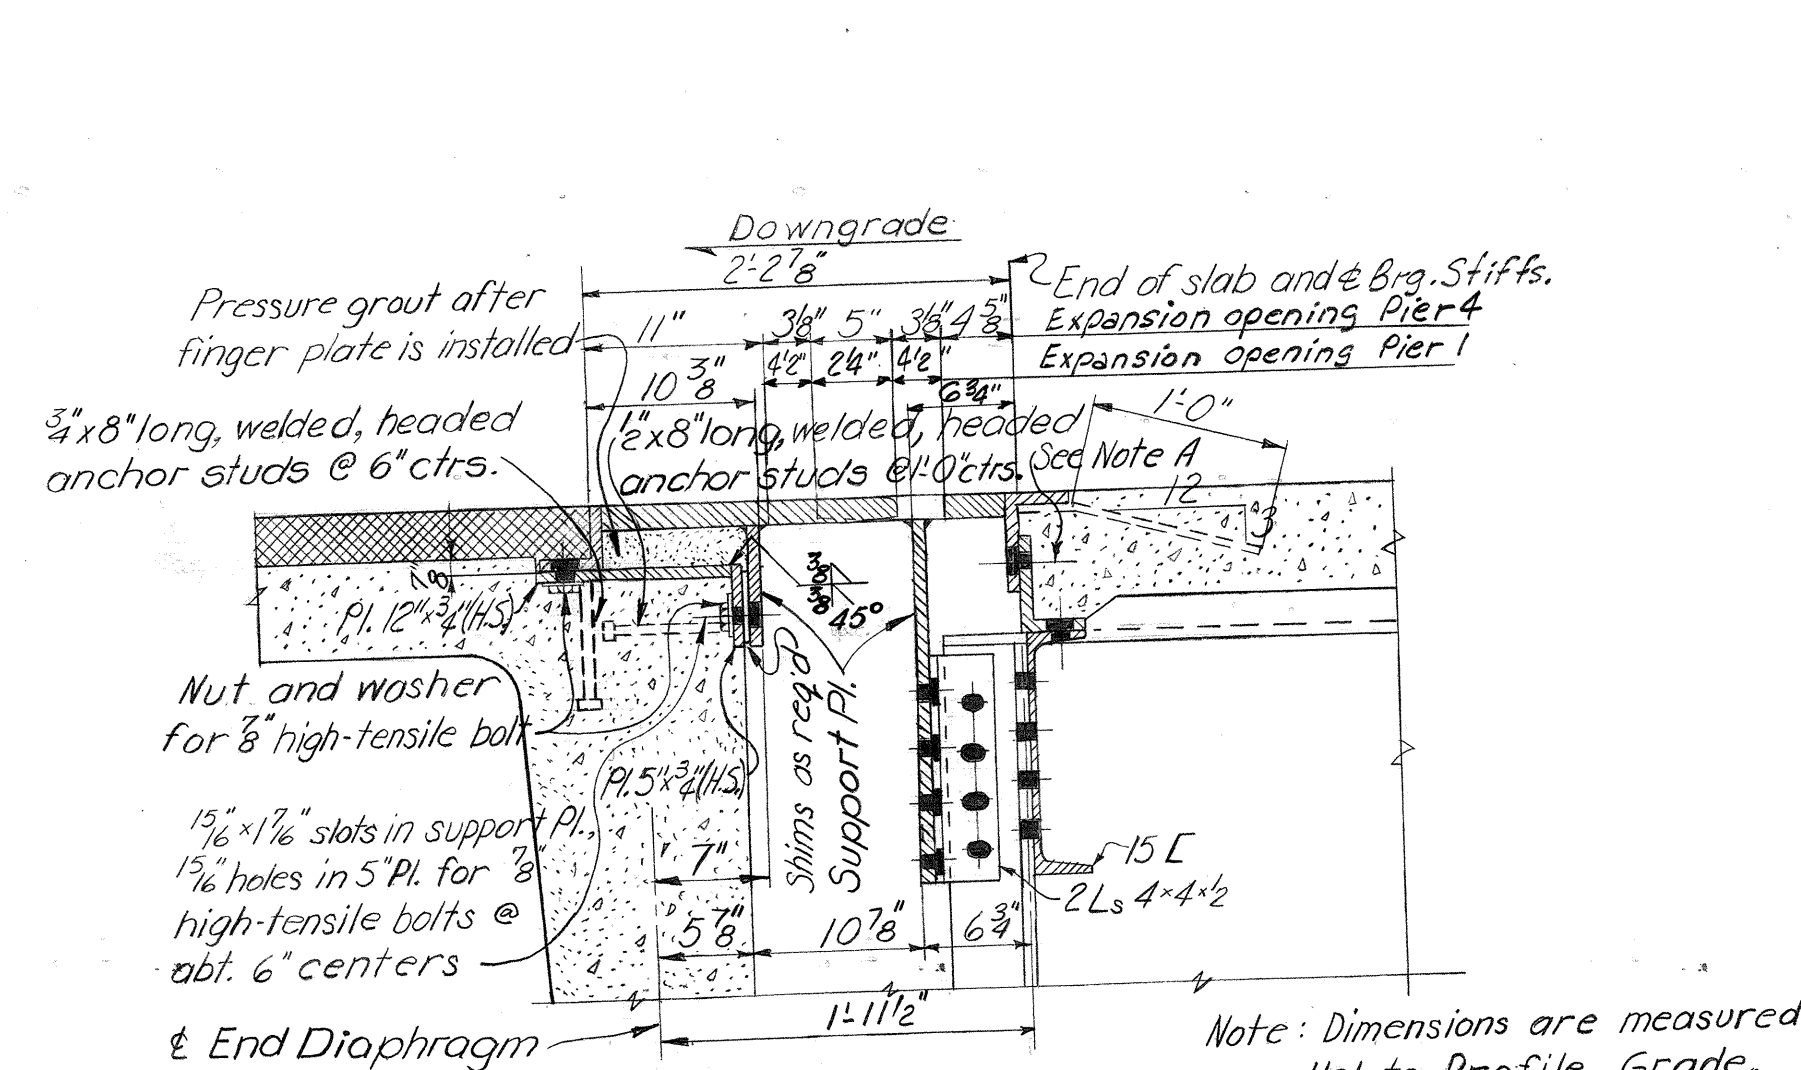 Downgrade
2'-2 7/8"
End of slab and ℄ Brg. Stiffs.
Pressure grout after
finger plate is installed
11"
3 1/8"
5"
3 1/8"
4 5/8"
Expansion opening Pier 4
4 1/2"
2 1/4"
4 1/2"
Expansion opening Pier 1
10 3/8"
6 3/4"
1'-0"
3/4"x8" long, welded, headed
anchor studs @ 6" ctrs.
1/2"x8" long, welded, headed
anchor studs @ 1'-0" ctrs.
See Note A
12
3
7/8
3/8
3/8
45°
Pl. 12"x3/4"(H.S.)
Nut and washer
for 7/8" high-tensile bolt
Pl. 5"x3/4"(H.S.)
Shims as req'd
Support Pl.
15/16"x1 7/16" slots in support Pl.,
15/16" holes in 5" Pl. for 7/8"
high-tensile bolts @
abt. 6" centers
7"
15 [
2 Ls 4x4x1/2
5 7/8"
10 7/8"
6 3/4"
1'-11 1/2"
℄ End Diaphragm
Note: Dimensions are measured
to Profile Grade.